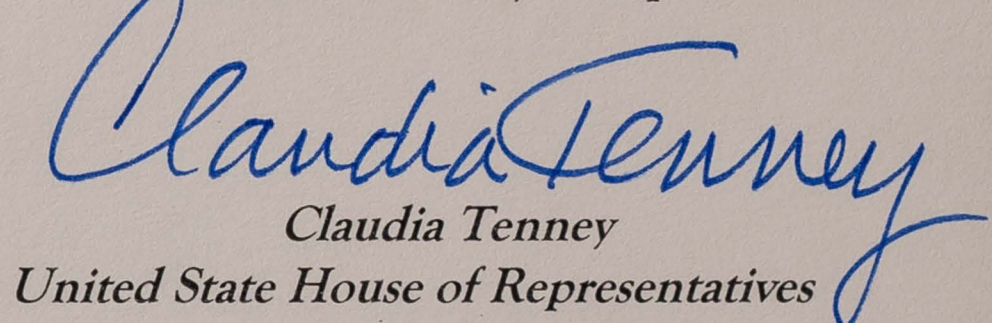 Claudia Tenney
Claudia Tenney
United State House of Representatives